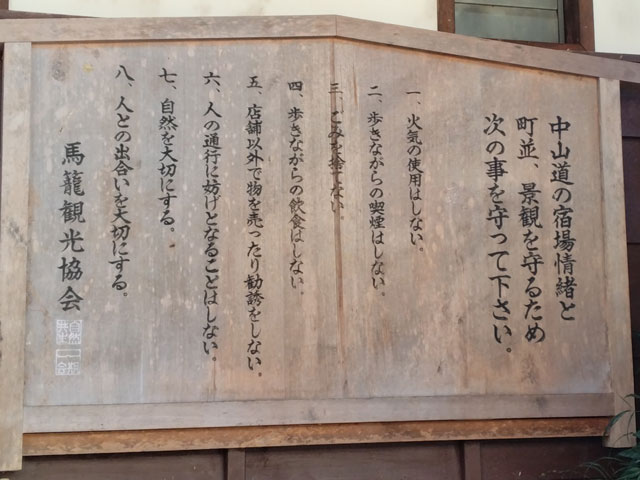 中山道の宿場情緒と
町並、景観を守るため
次の事を守って下さい。
一、火気の使用はしない。
二、歩きながらの喫煙はしない。
三、ごみを捨てない。
四、歩きながらの飲食はしない。
五、店舗以外で物を売ったり勧誘をしない。
六、人の通行に妨げとなることはしない。
七、自然を大切にする。
八、人との出合いを大切にする。
馬籠観光協会